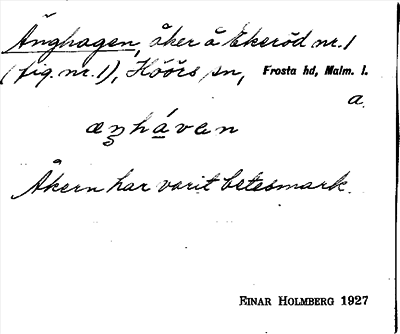 Änghagen, åker å Ekeröd nr. 1
(fig. nr. 1), Höörs sn, Frosta hd, Malm. l.
a.
æn̥hávan
Åkern har varit betesmark.
EINAR HOLMBERG 1927